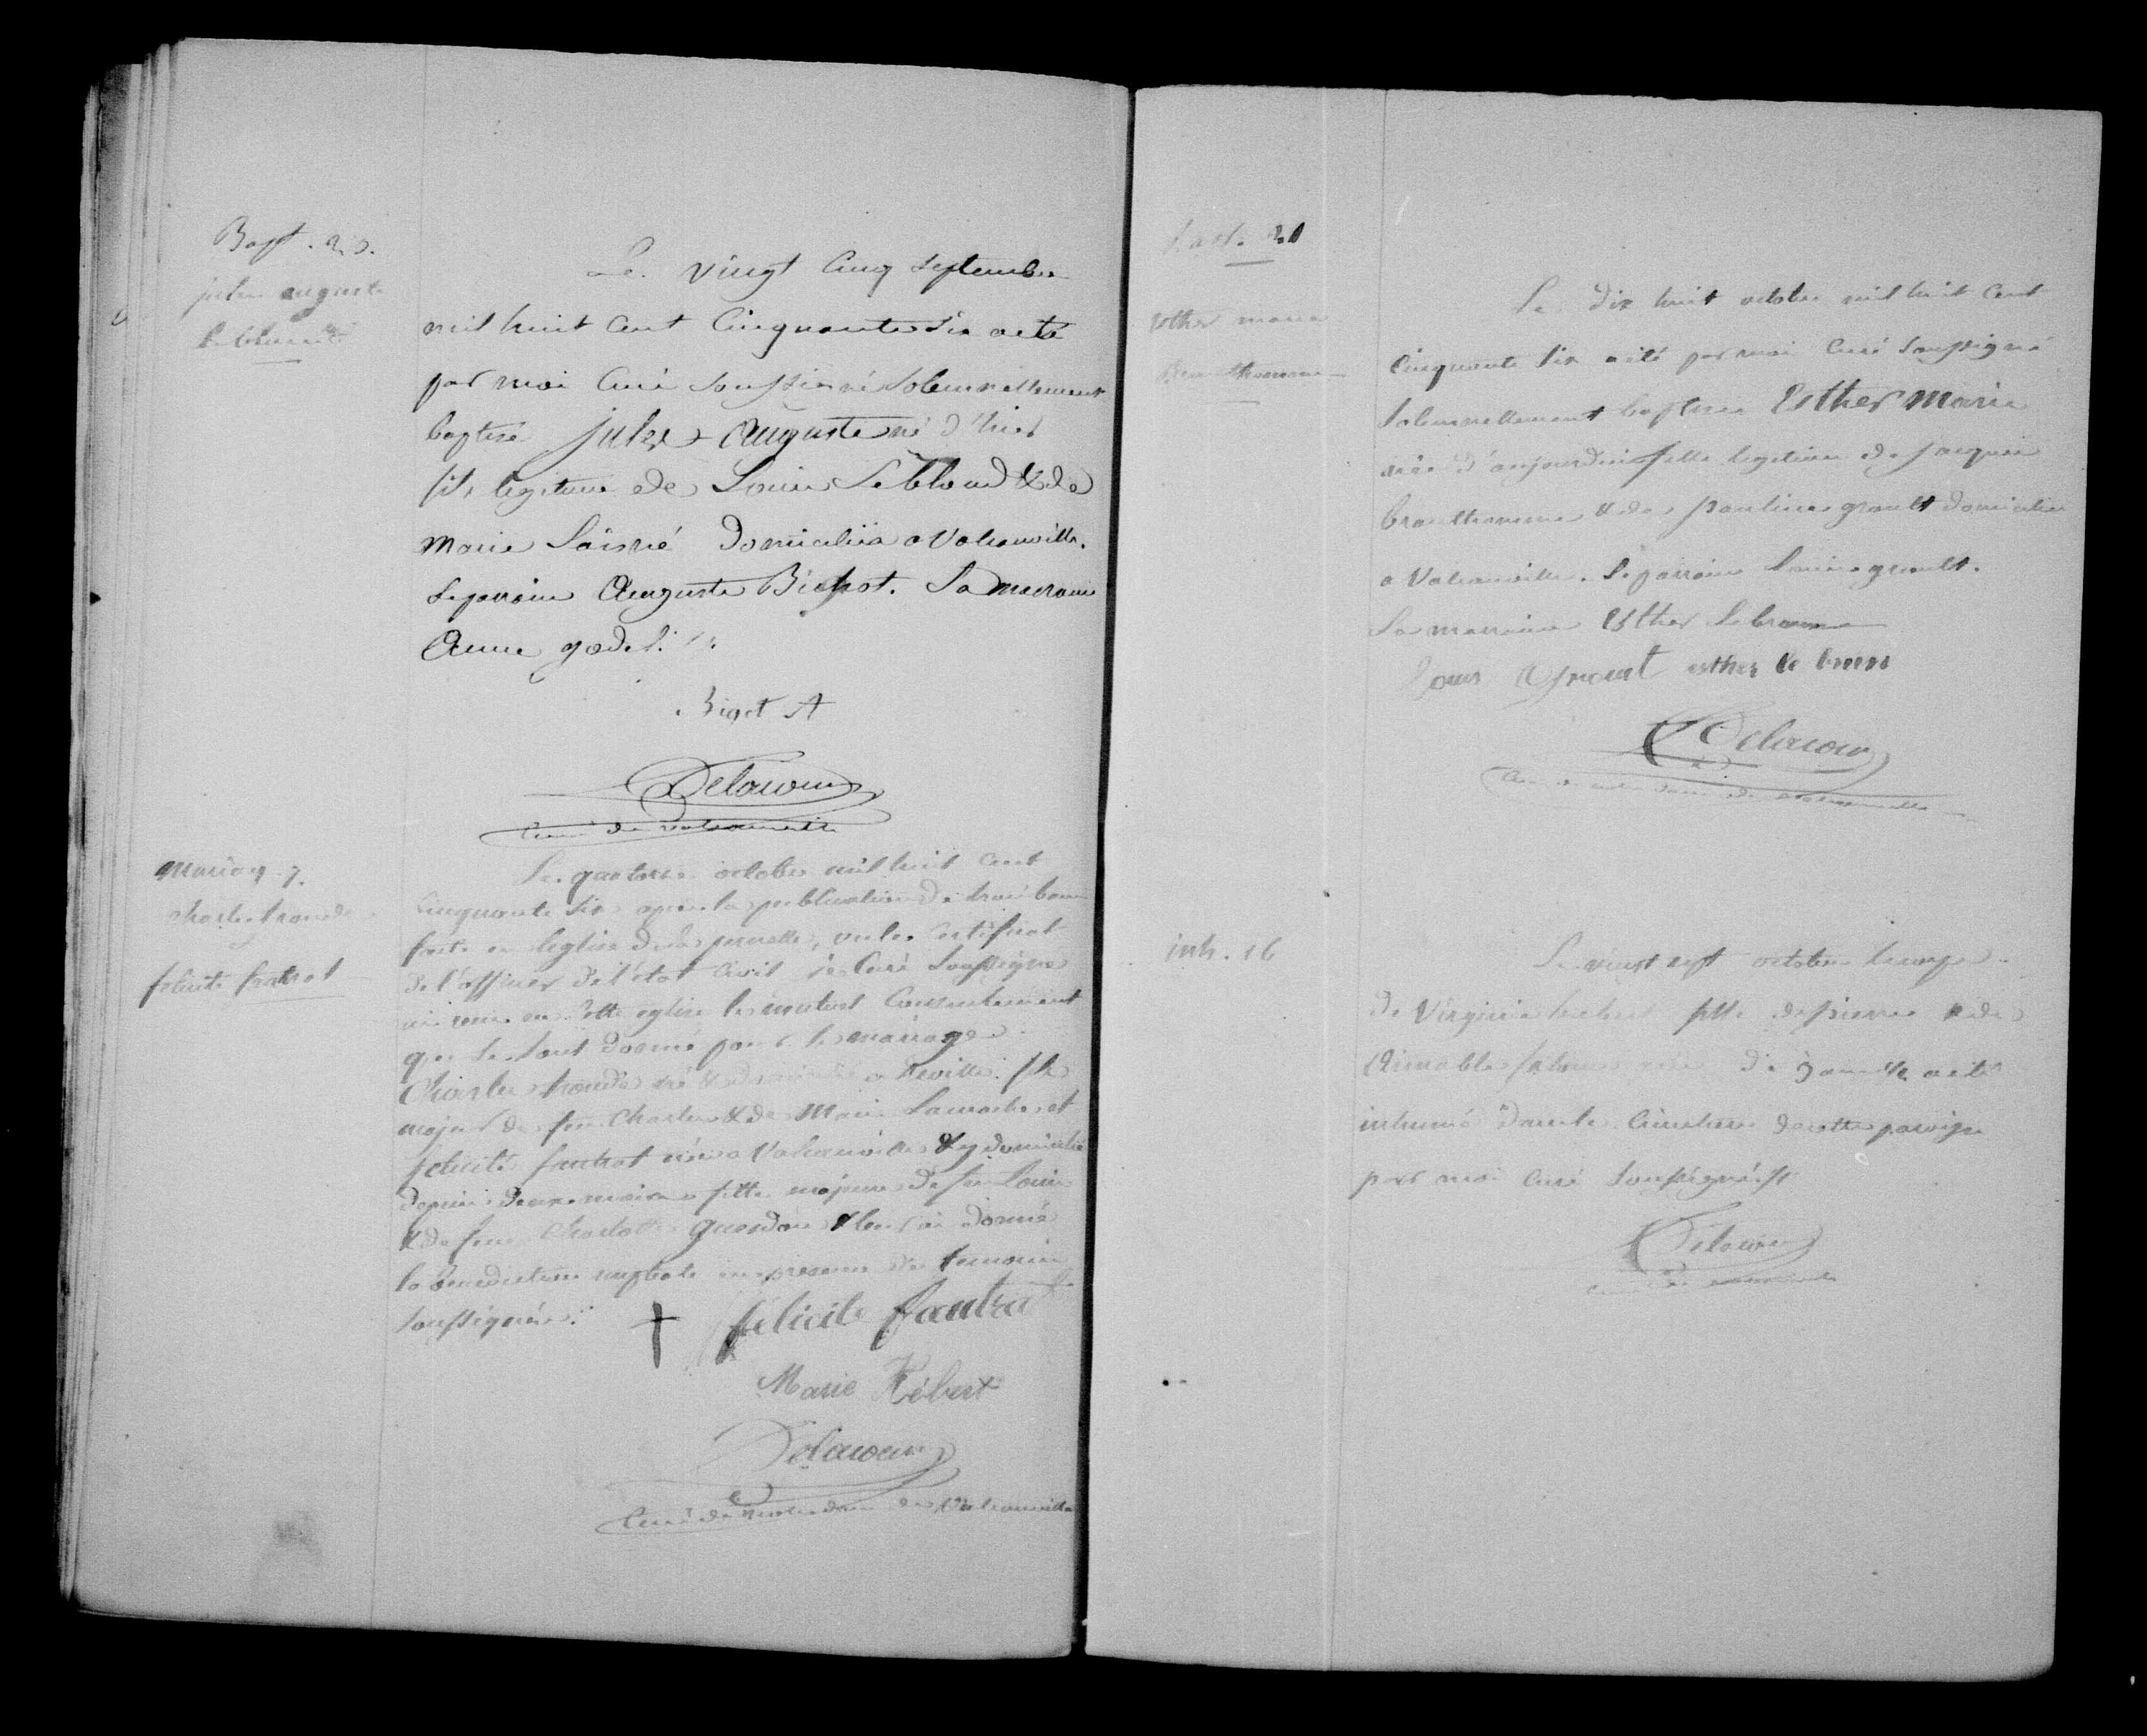 Bapt.
jules auguste
Le vingt cinq septembre
mil huit cent cinquante six a eté
par moi curé soussigné solemnellement
baptisé jules Auguste né d'hier
fils legitime de Louis Leblond & de
marie Laisné domiciliés a Valcanville.
Le parrain Auguste La marraine
Anne godel.
Bigot A
Delacour
curé de valcanville
mariag. 7.
felicité fautrat
Le quatorze octobre mil huit cent
cinquante six apres la publication de trois bans
faite en l'eglise de la pernelle, vu le certificat
de l'officier de l'état civil je curé soussigné
ai recu en cette eglise le mutuel consentement
que se sont donné pour le mariage
Charles né & a Reville. fils
majeur de feu Charles & de Marie et
felicité fautrat née a Valcanville & y domiciliée
depuis deux mois fille majeure de feu Louis
& de feue Charlotte & leur ai donné
la benediction nuptiale en presence des temoins
soussignés.
† félicité fautrat
Marie Hébert
Delacour
Curé de notre dame de Valcanville
Bapt.
esther marie
Le dix huit octobre mil huit cent
cinquante six a été par moi curé soussigné
solemnellement baptisée Esther marie
née d'aujourdui fille legitime de jacques
& de pauline grault domiciliés
a Valcanville. Le parrain Louis grault.
La marraine Esther Lebrun
Louis esther le brun
Delacour
inh. 16
Le vingt sept octobre le corps
de Virginie hebert fille de pierre & de
Aimable a eté
inhumé dans le cimetiere de cette paroisse
par moi curé soussigné.
Delacour